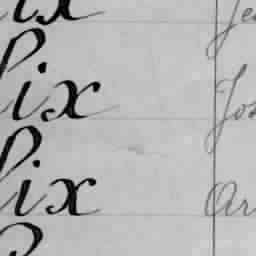 ix Je
lix Jos
lix Ar